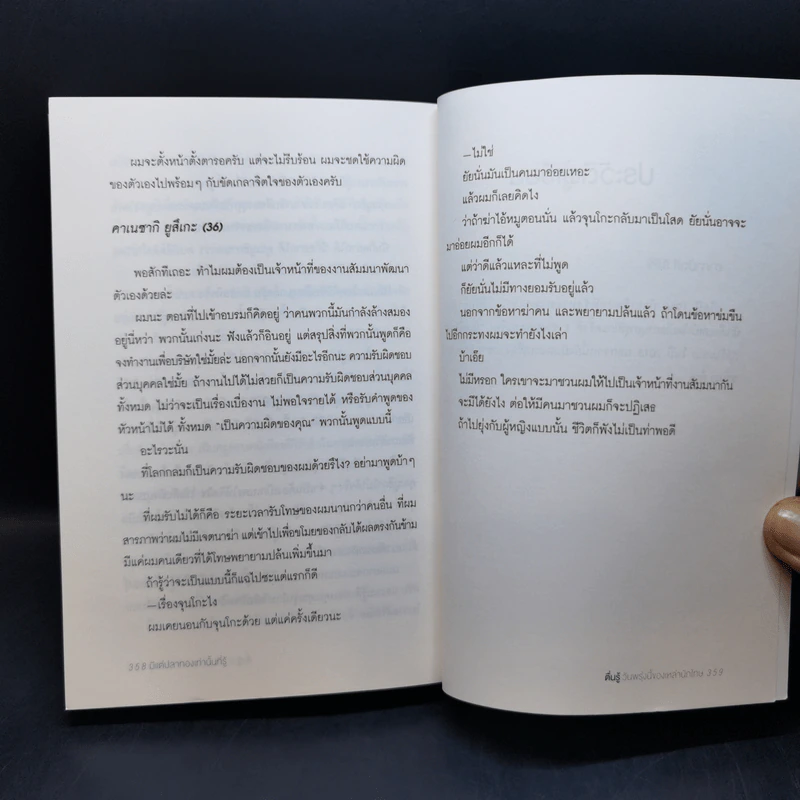 ผมจะตั้งหน้าตั้งตารอครับ แต่จะไม่รีบร้อน ผมจะชดใช้ความผิด
ของตัวเองไปพร้อมๆ กับขัดเกลาจิตใจของตัวเองครับ
คาเนซากิ ยูสึเกะ (36)
พอสักทีเถอะ ทำไมผมต้องเป็นเจ้าหน้าที่ของงานสัมมนาพัฒนา
ตัวเองด้วยล่ะ
ผมนะ ตอนที่ไปเข้าอบรมก็คิดอยู่ ว่าคนพวกนี้มันกำลังล้างสมอง
อยู่นี่หว่า พวกนั้นเก่งนะ ฟังแล้วก็อินอยู่ แต่สรุปสิ่งที่พวกนั้นพูดก็คือ
จงทำงานเพื่อบริษัทใช่มั้ยล่ะ นอกจากนั้นยังมีอะไรอีกนะ ความรับผิดชอบ
ส่วนบุคคลใช่มั้ย ถ้างานไปได้ไม่สวยก็เป็นความรับผิดชอบส่วนบุคคล
ทั้งหมด ไม่ว่าจะเป็นเรื่องเบื่องาน ไม่พอใจรายได้ หรือรับคำพูดของ
หัวหน้าไม่ได้ ทั้งหมด “เป็นความผิดของคุณ” พวกนั้นพูดแบบนี้
อะไรวะนั่น
ที่โลกกลมก็เป็นความรับผิดชอบของผมด้วยรึไง? อย่ามาพูดบ้าๆ
นะ
ที่ผมรับไม่ได้ก็คือ ระยะเวลารับโทษของผมนานกว่าคนอื่น ที่ผม
สารภาพว่าผมไม่มีเจตนาฆ่า แต่เข้าไปเพื่อขโมยของกลับได้ผลตรงกันข้าม
มีแค่ผมคนเดียวที่ได้โทษพยายามปล้นเพิ่มขึ้นมา
ถ้ารู้ว่าจะเป็นแบบนี้ก็แฉไปซะแต่แรกก็ดี
—เรื่องจุนโกะไง
ผมเคยนอนกับจุนโกะด้วย แต่แค่ครั้งเดียวนะ
358 มีแต่ปลาทองเท่านั้นที่รู้
—ไม่ใช่
ยัยนั่นมันเป็นคนมาอ่อยเหอะ
แล้วผมก็เลยคิดไง
ว่าถ้าฆ่าไอ้หมูตอนนั่น แล้วจุนโกะกลับมาเป็นโสด ยัยนั่นอาจจะ
มาอ่อยผมอีกก็ได้
แต่ว่าดีแล้วแหละที่ไม่พูด
ก็ยัยนั่นไม่มีทางยอมรับอยู่แล้ว
นอกจากข้อหาฆ่าคน และพยายามปล้นแล้ว ถ้าโดนข้อหาข่มขืน
ไปอีกกระทงผมจะทำยังไงเล่า
บ้าเอ๊ย
ไม่มีหรอก ใครเขาจะมาชวนผมให้ไปเป็นเจ้าหน้าที่งานสัมมนากัน
จะมีได้ยังไง ต่อให้มีคนมาชวนผมก็จะปฏิเสธ
ถ้าไปยุ่งกับผู้หญิงแบบนั้น ชีวิตก็พังไม่เป็นท่าพอดี
ตื่นรู้ วันพรุ่งนี้ของเหล่านักโทษ 359